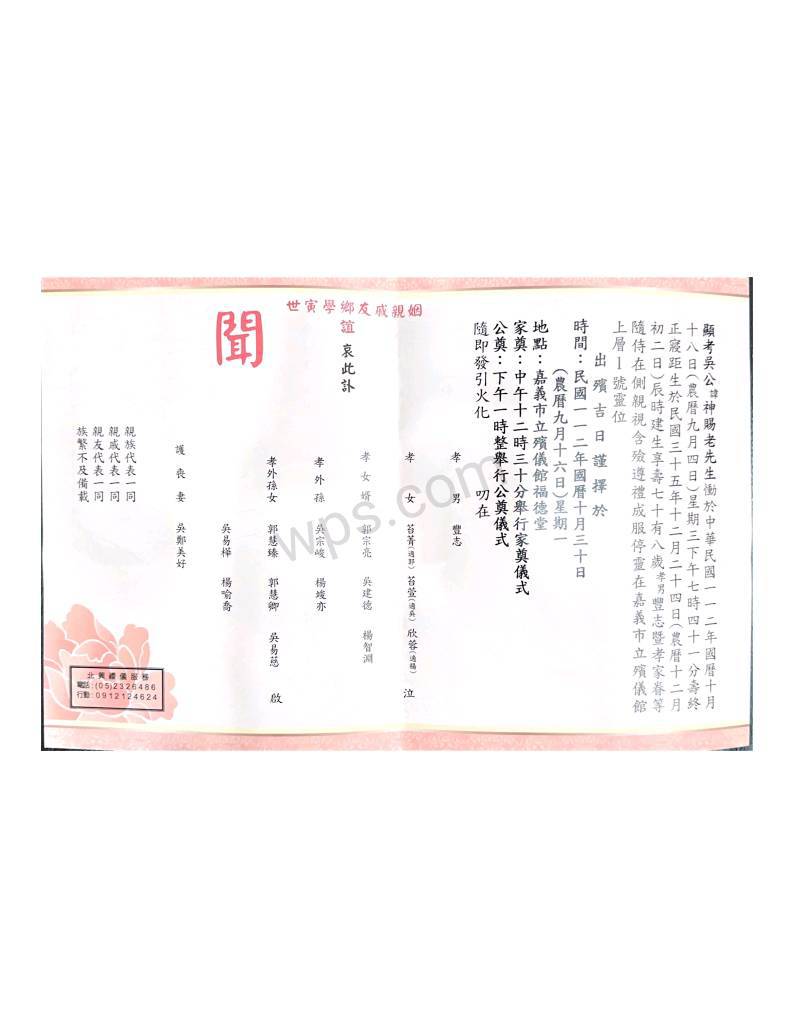 顯考吳公諱神賜老先生慟於中華民國一一二年國曆十月
十八日(農曆九月四日)星期三下午七時四十一分壽終
正寢距生於民國三十五年十二月二十四日(農曆十二月
初二日)辰時建生享壽七十有八歲孝男豐志暨孝家眷等
隨侍在側親視含殮遵禮成服停靈在嘉義市立殯儀館
上層1號靈位
出殯吉日謹擇於
時間：民國一一二年國曆十月三十日
(農曆九月十六日)星期一
地點：嘉義市立殯儀館福德堂
家奠：中午十二時三十分舉行家奠儀式
公奠：下午一時整舉行公奠儀式
隨即發引火化 叨在
姻親戚友鄉學寅世
誼 哀此訃
聞
孝男 豐志
孝女 苔菁(適郭) 苔萱(適吳) 欣蓉(適楊) 泣
孝女婿 郭宗亮 吳建德 楊智淵
孝外孫 吳宗峻 楊竣亦
孝外孫女 郭慧臻 郭慧卿 吳易慈 啟
吳易樺 楊喻喬
護喪妻 吳鄭美好
親族代表一同
親戚代表一同
親友代表一同
族繁不及備載
北興禮儀服務
電話:(05)2326486
行動:0912124624
wps.com